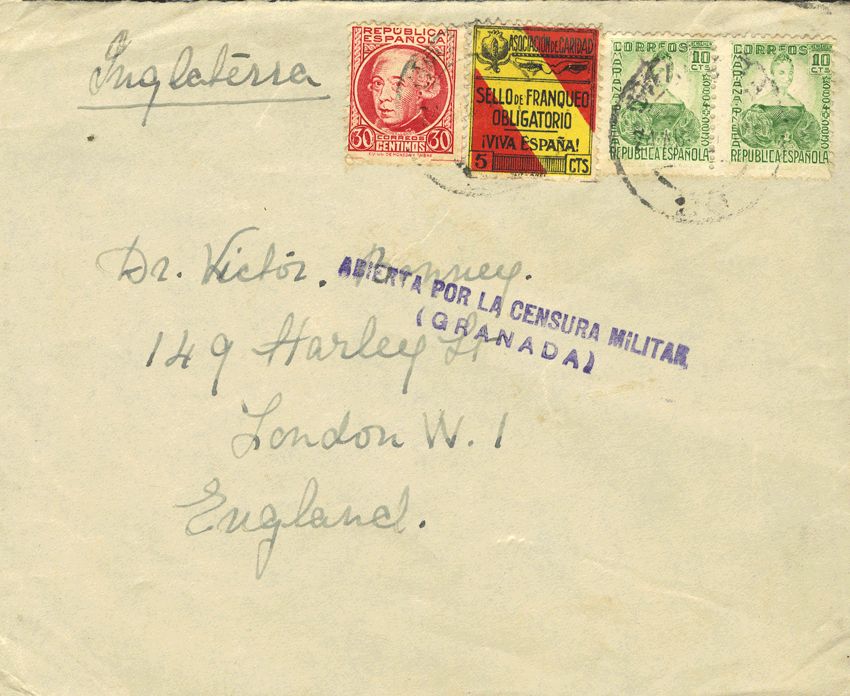 Inglatérra
REPUBLICA
ESPAÑOLA
CORREOS
30 CENTIMOS 30
ASOCIACIÓN DE CARIDAD
SELLO DE FRANQUEO
OBLIGATORIO
¡VIVA ESPAÑA!
5 CTS
CORREOS 10 CTS
REPUBLICA ESPAÑOLA
CORREOS 10 CTS
REPUBLICA ESPAÑOLA
Dr. Victor. Bonney.
ABIERTA POR LA CENSURA MILITAR
(GRANADA)
149 Harley St
London W. 1
England.